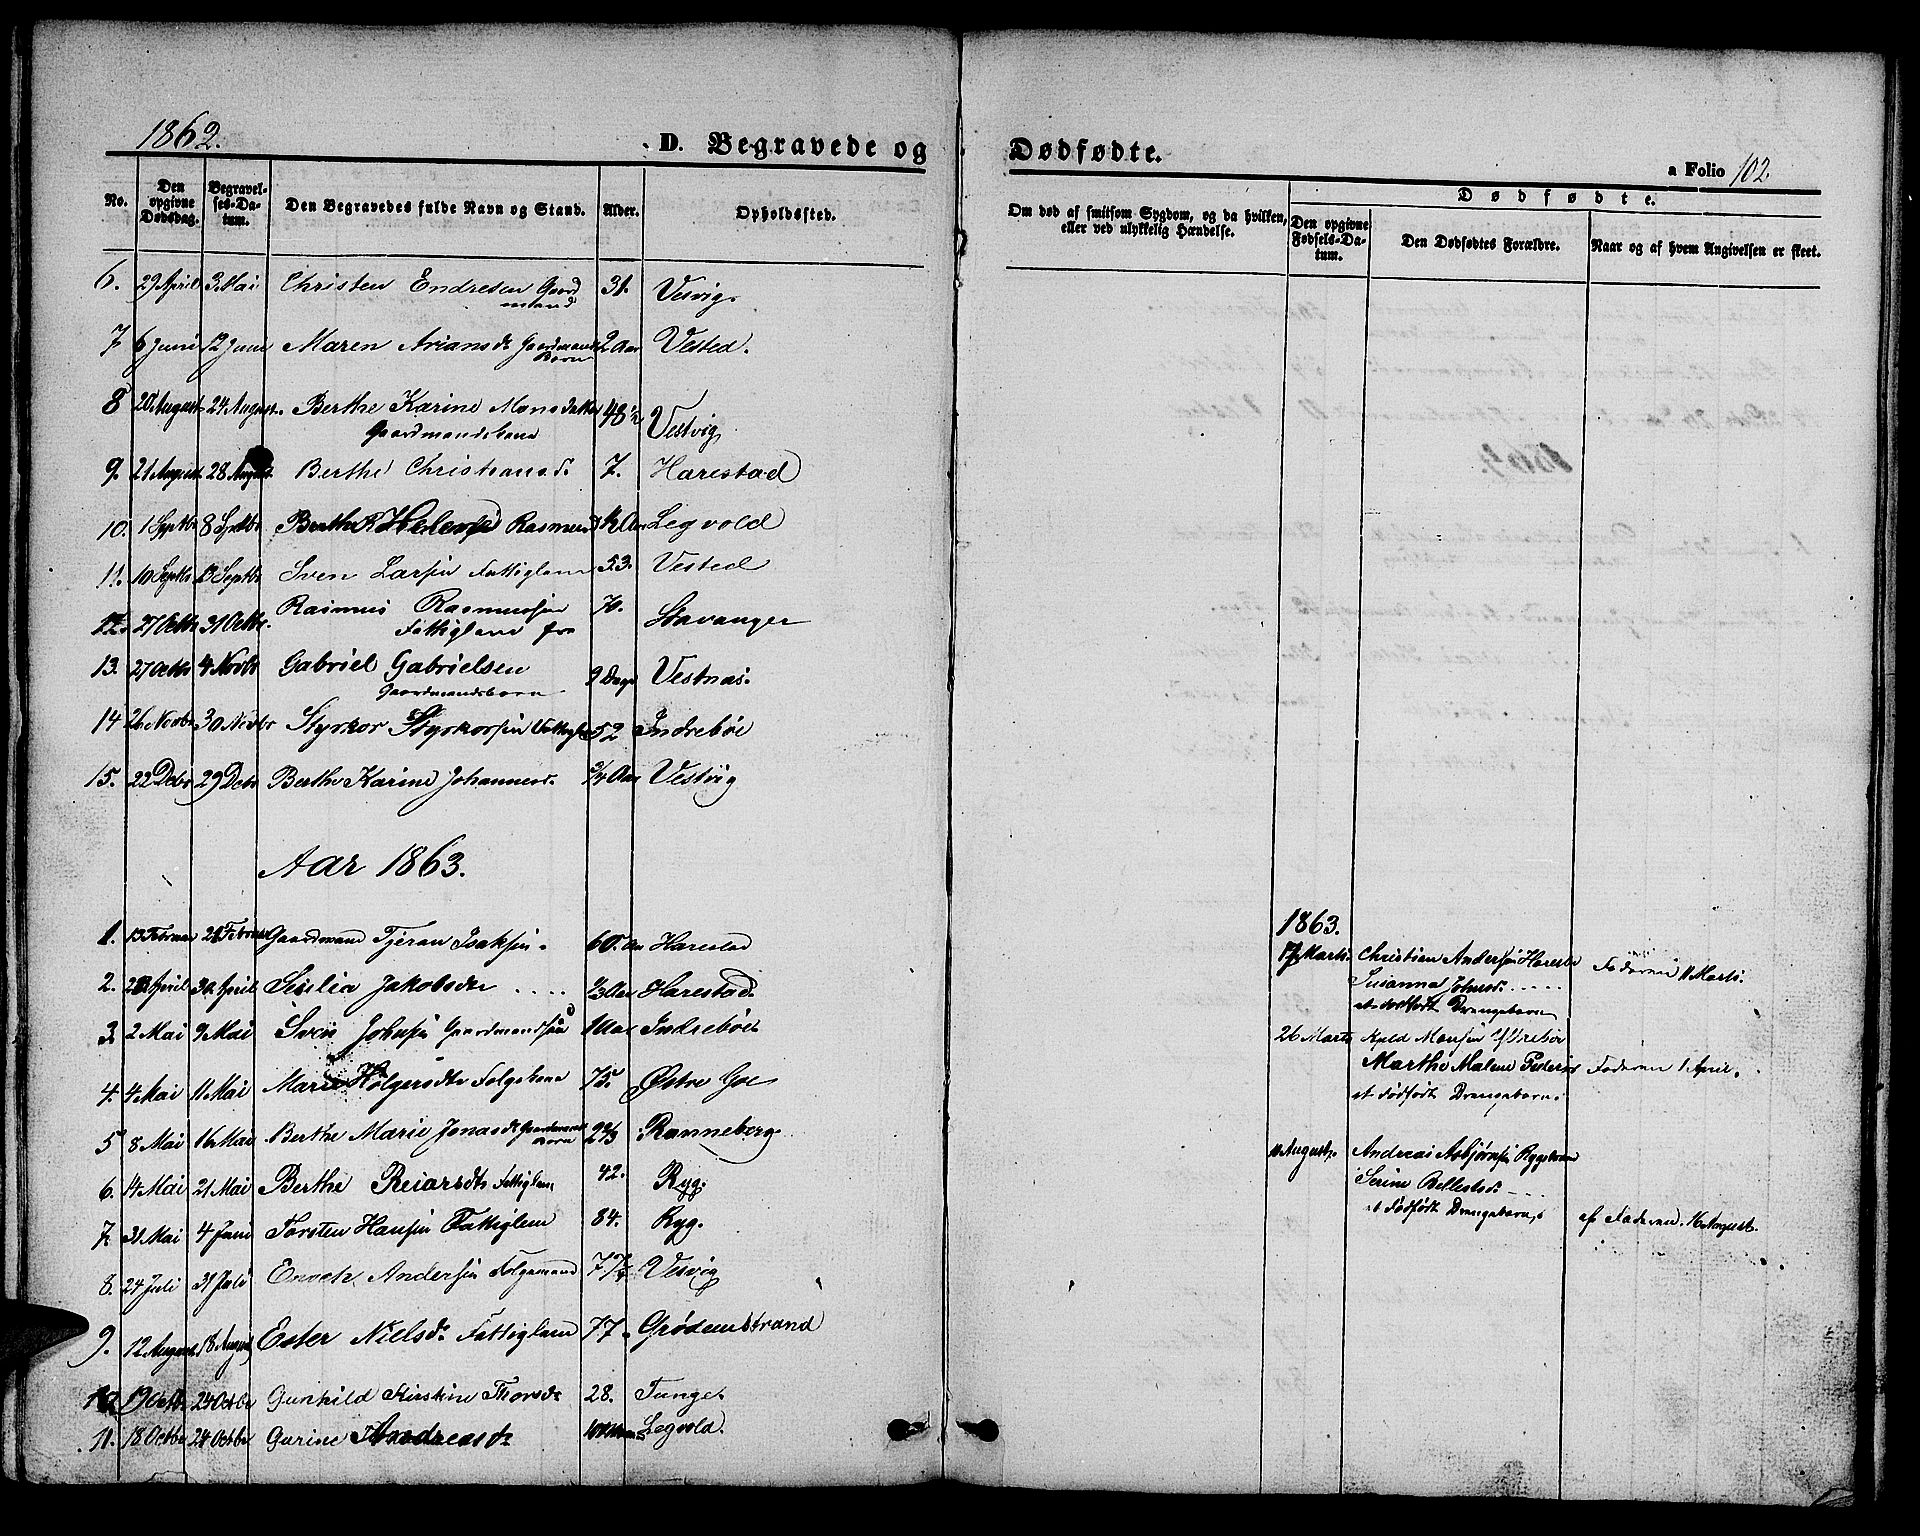 1862.
D. Begravede og
No.
Den opgivne Dødsdag.
Begravelses-Datum.
Den Begravedes fulde Navn og Stand.
Alder.
Opholdssted.
6. 29 April 3 Mai Christen Endresen Gaard 31. Vesvig.
mand
7. 6 Juni 12 Juni Maren Ariansd. Gaardmands 2 Aar Vested.
Barn
8 20 August 24 August. Berthe Karine Monsdatter 48 1/2 Vestvig
Gaardmandskone
9. 21 August 28 August. Berthe Christiansd. 7. Harestad
10. 1 Septbr 8 Septbr Berthe Helene Rasmusd Aar Legvold
11. 10 Septbr 13 Septbr Sven Larsen Fattiglem 53. Vested
12. 27 Octbr 31 Octbr. Rasmus Rasmussen 70. Stavanger
Fattiglem fra
13. 27 Octbr 4 Novbr Gabriel Gabrielsen 9 Dage Vestnæs.
Gaardmandsbarn
14 26 Novbr 30 Novbr Styrkor Styrkorsen Fattigl. 52 Indrebøe
15. 22 Debr 29 Debr Berthe Karine Johannesd. 3/4 Aar Vestvig
Aar 1863.
1. 13 Februar 21 Februar Gaardmand Tjeran Isaksen. 60. Aar Harestad
2. April 30. April Sesilia Jakobsdtr .... 2/3 Aar Harestad.
3. 2 Mai 9 Mai Sven Johnsen Gaardmandssøn 1 Aar Indrebøe
4. 4 Mai 11 Mai Marie Holgersdtr Folgekone 75. Østre Goe
5 8 Mai 16 Mai Berthe Marie Jonasd. Gaardmands 2 2/3 Ranneberg.
Barn
6. 14 Mai 21 Mai Berthe Reiarsdtr Fattiglem 42. Ryg.
7. 31 Mai 4 Juni Torsten Hansen Fattiglem 84. Ryg.
8. 24 Juli 31 Juli Enoch Andersen Folgemand 77 Vesvig
9. 12 August 18 August Ester Nielsd. Fattiglem 77. Grødemstrand
10. 19 Octbr 24 Octbr Gunhild Kirstine Thorsd. 28. Tunge.
11. 18 Octbr 24 Octbr Gurine Andreasd. Legvold.
Dødfødte.
a Folio 102.
Om død af smitsom Sygdom, og da hvilken, eller ved ulykkelig Hændelse.
Dødfødte.
Den opgivne Fødsels-Datum.
Den Dødfødtes Forældre.
Naar og af hvem Angivelsen er skeet.
1863.
Marts Christian Andersen Harestad Faderen 11 Marts.
Susanna Johnsd. .....
et dødfødt Drengebarn
26 Marts Kjeld Monsen Ytrebø
Marthe Malene Pedersd Faderen 1 April.
et dødfødt Drengebarn.
11 August. Andreas Asbjørnsen Rygsbraud
Serine Bellestsd. ....
et dødfødt Drengebarn,
af Faderen. 16 August.